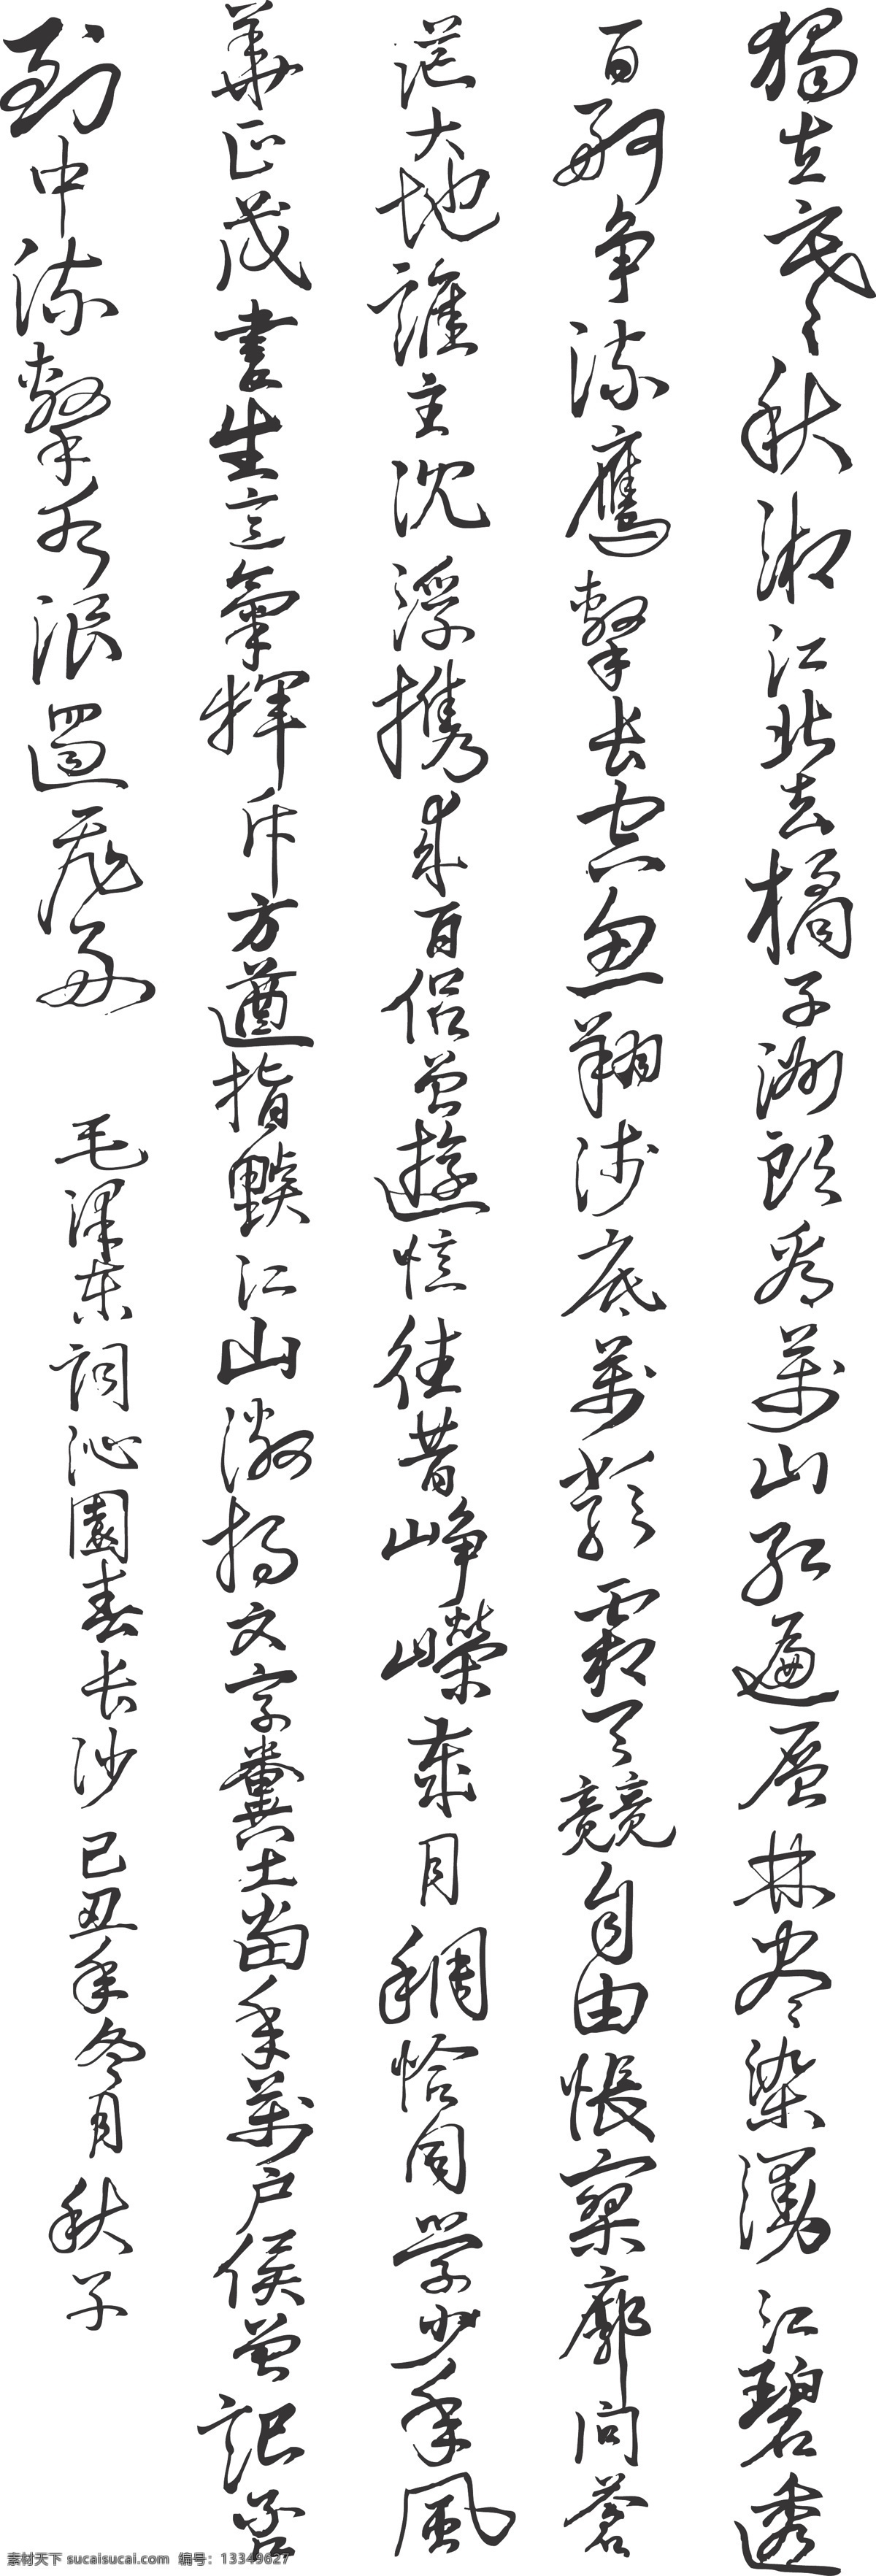 獨立寒秋湘江北去橘子洲頭看萬山紅遍層林尽染漫江碧透
百舸争流鷹擊长空魚翔浅底萬類霜天競自由悵寥廓問蒼
茫大地誰主沈浮携来百侣曾遊憶往昔峥嶸歲月稠恰同學少年風
華正茂書生意氣揮斥方遒指點江山激揚文字糞土當年萬户侯曾記否
到中流擊水浪遏飛舟 毛澤東詞沁園春长沙 己丑年冬月秋子
素材天下 sucaisucai.com 编号：13349627